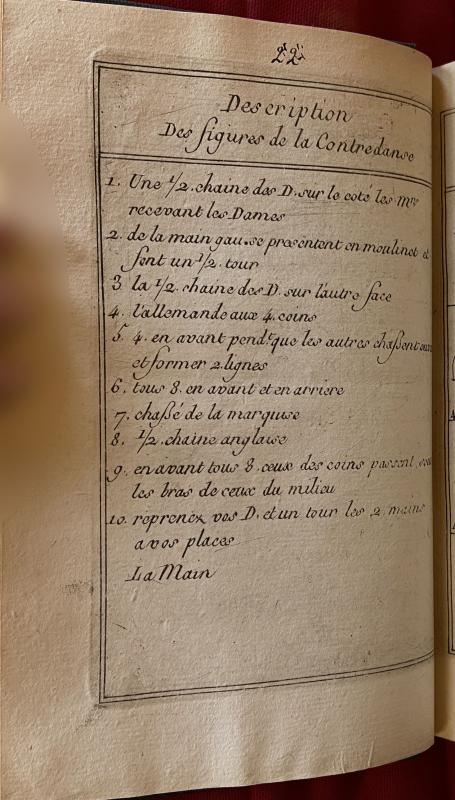 22
Description
Des figures de la Contredanse
1. Une 1/2. chaine des D. sur le coté les Mrs
recevant les Dames
2. de la main gau.se presentent en moulinet et
font un 1/2. tour
3 la 1/2. chaine des D. sur l'autre face
4. l'allemande aux 4. coins
5. 4. en avant pend.t que les autres chassent
et former 2. lignes
6. tous 8. en avant et en arriere
7. chassé de la marquise
8. 1/2. chaine anglaise
9. en avant tous 8. ceux des coins passent
les bras de ceux du milieu
10. reprenez vos D. et un tour les 2. mains
a vos places
La Main